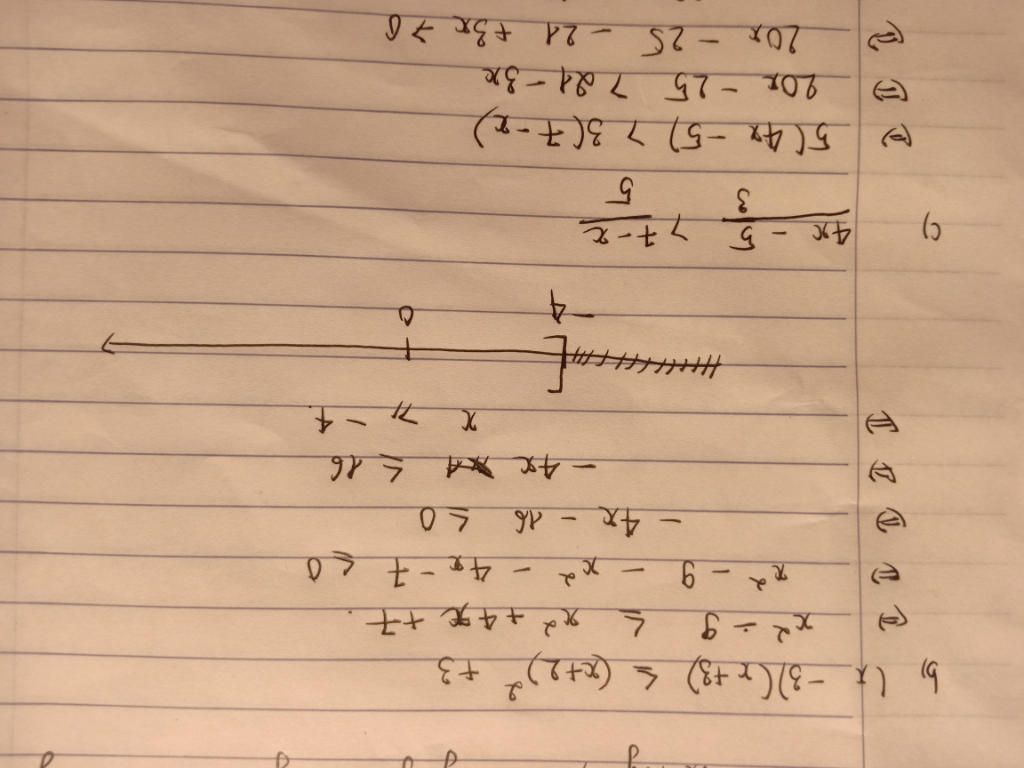 b) (x - 3)(x+3) ≤ (x+2)² + 3
⇔ x² - 9 ≤ x² + 4x + 7.
⇔ x² - 9 - x² - 4x - 7 ≤ 0
⇔ - 4x - 16 ≤ 0
⇔ - 4x ≤ 16
⇔ x ≥ - 4.
-4 0
c) 4x - 5 > 7 - x
3 5
⇔ 5(4x - 5) > 3(7 - x)
⇔ 20x - 25 > 21 - 3x
⇔ 20x - 25 - 21 + 3x > 0